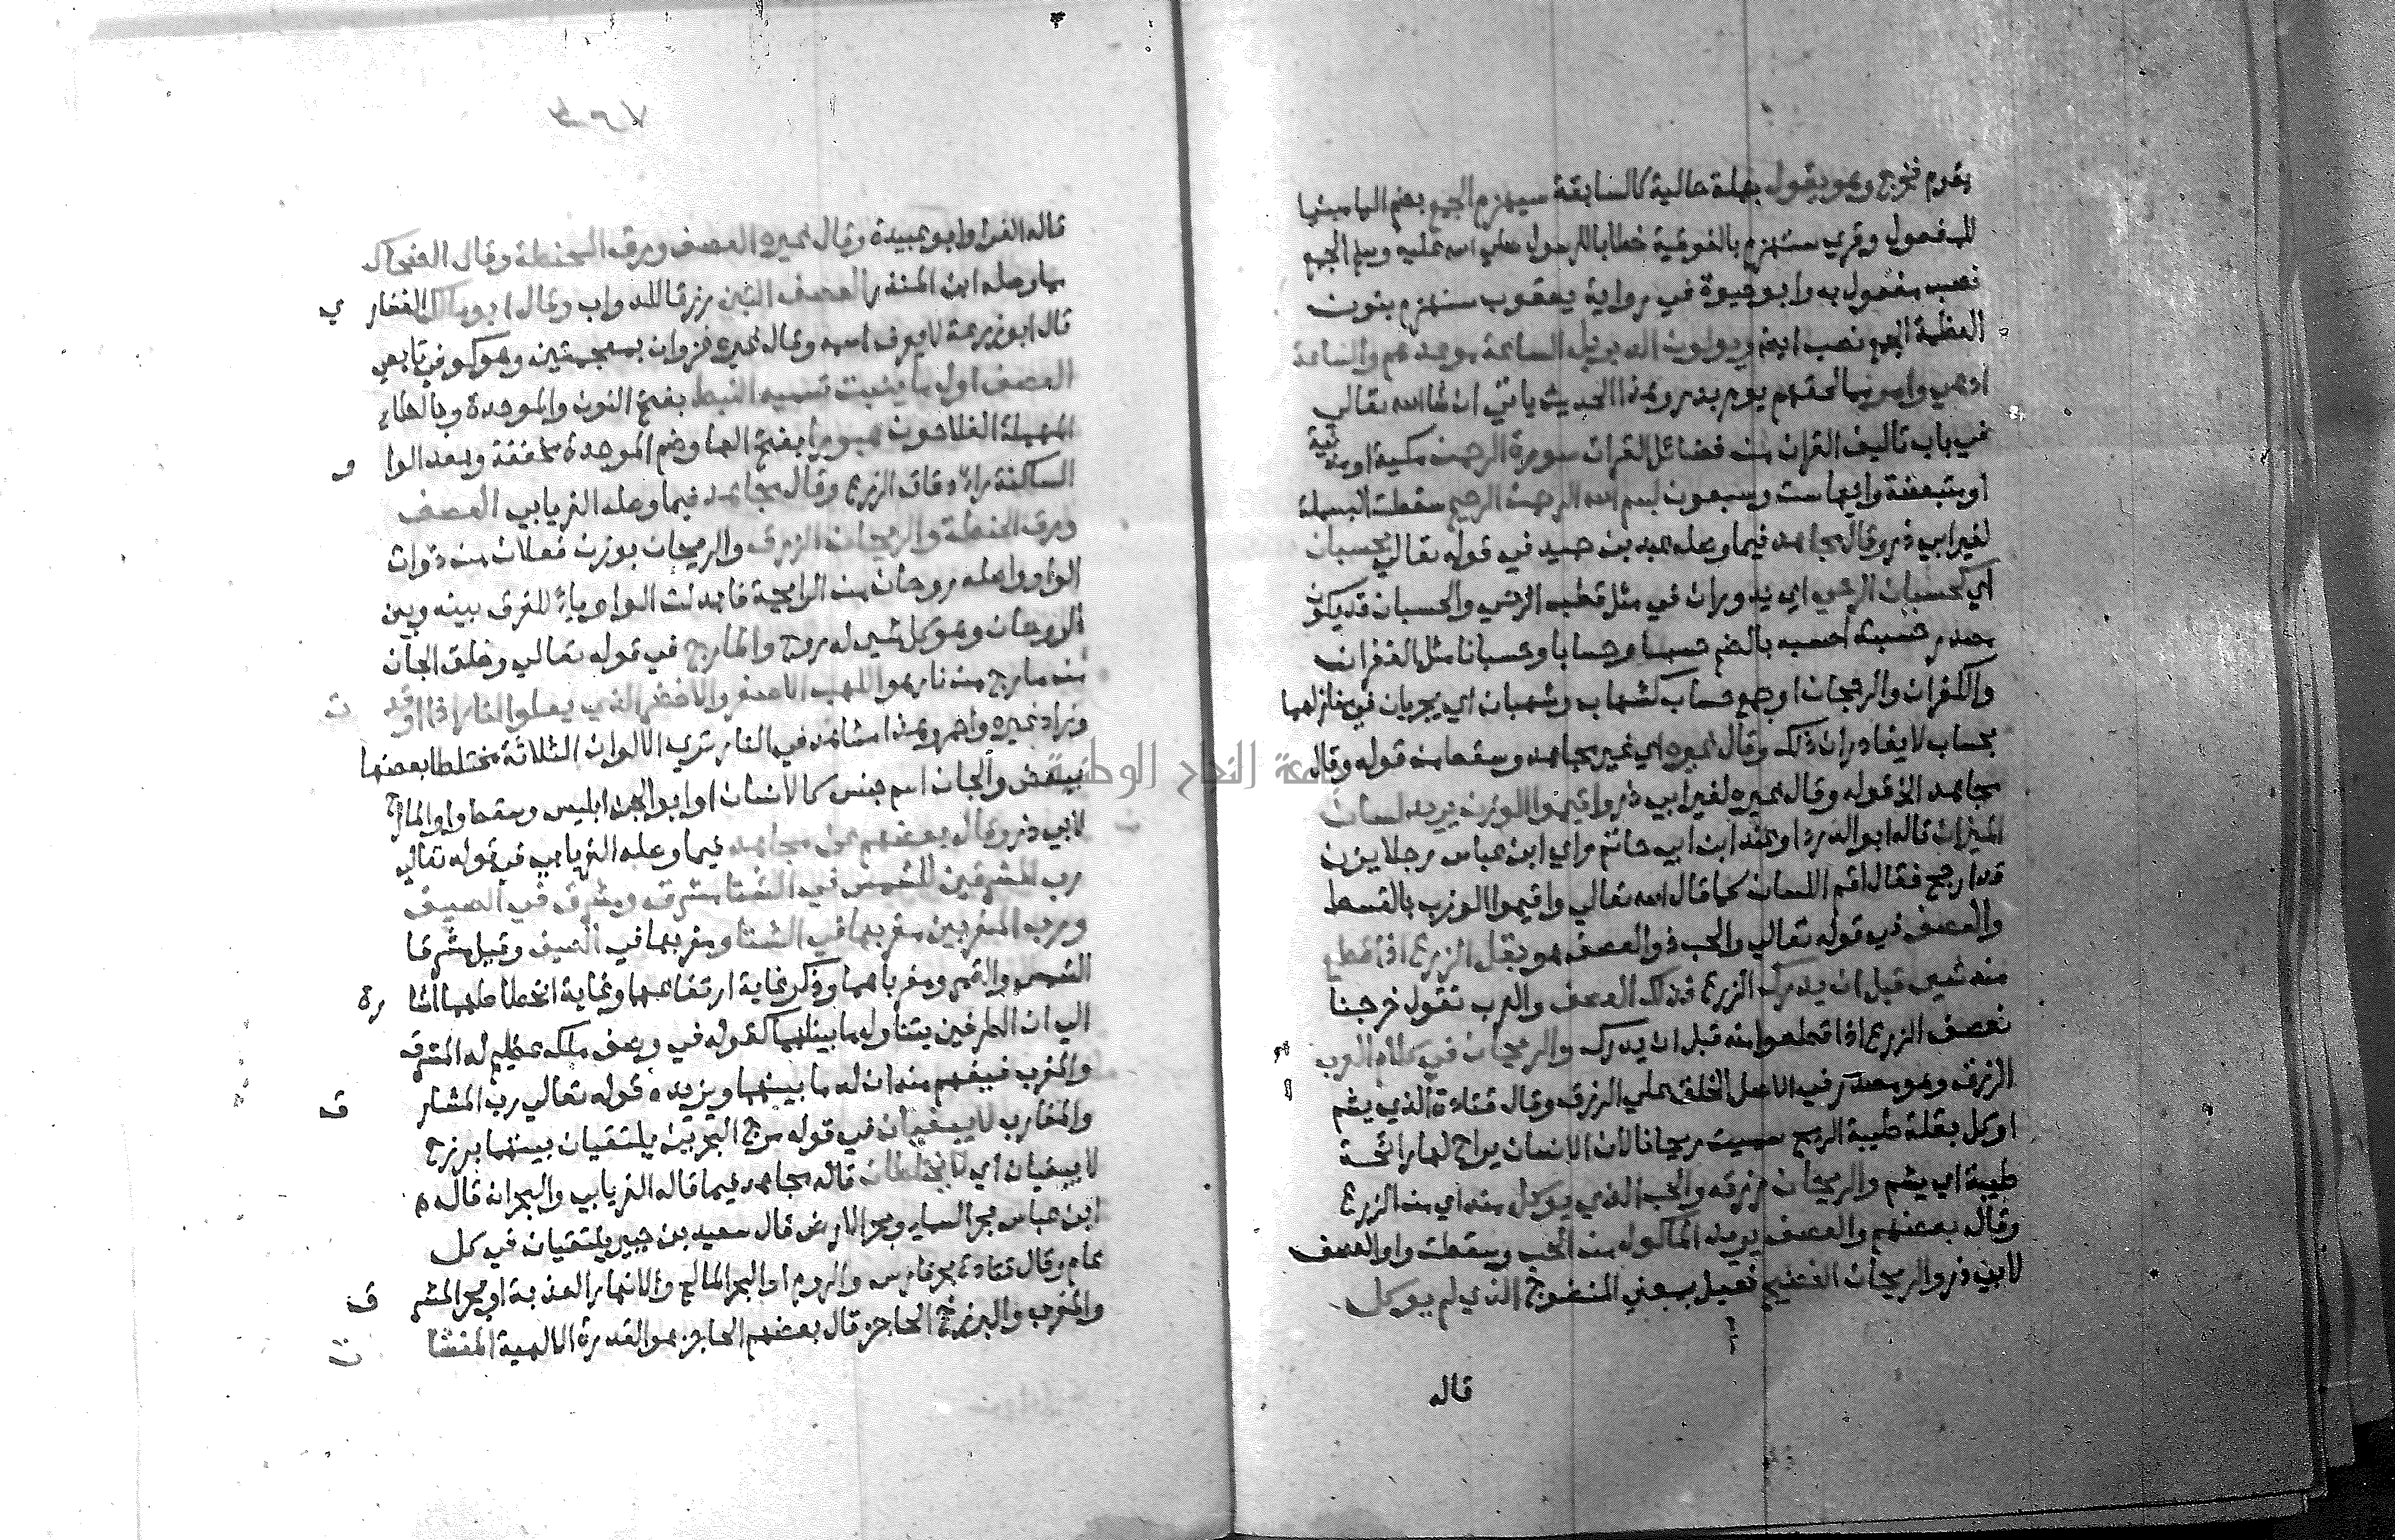 يقوم فخرج وهو يقول بجملة حالية كالسابقة سيهزم الجمع بضم اليا مبنيا
للمفعول وقري ستهزم بالفوقية خطابا للرسول صلي الله عليه وسلم الجمع
نصب مفعول به وابو حيوة في رواية يعقوب سنهزم بنون
العظمة الجمع نصب ايضا ويولون الدبر بل الساعة موعدهم والساعة
ادهي وامر مما لحقهم يوم بدر وهذا الحديث ياتي ان شا الله تعالي
في باب تاليف القران من فضائل القران سورة الرحمن مكية او مدنية
او متبعضة وايها ست وسبعون بسم الله الرحمن الرحيم سقطت البسملة
لغير ابي ذر وقال مجاهد فيما وصله عبد بن حميد في قوله تعالي بحسبان
اي كحسبان الرحي اي يدوران في مثل قطب الرحي والحسبان قد يكون
مصدر حسبته احسبه بالضم حسبا وحسابا وحسبانا مثل الغفران
والكفران والرجحان او جمع حساب كشهاب وشهبان اي يجريان في منازلهما
بحساب لا يغادران ذلك وقال غيره اي غير مجاهد وسقط من قوله وقال
مجاهد الي قوله وقال غيره لغير ابي ذر واقيموا الوزن يريد لسان
الميزان قاله ابو الدردا وعند ابن ابي حاتم راي ابن عباس رجلا يزن
قد ارجح فقال اقم اللسان كما قال الله تعالي واقيموا الوزن بالقسط
والعصف في قوله تعالي والحب ذو العصف هو بقل الزرع اذا قطع
منه شي قبل ان يدرك الزرع فذلك العصف والعرب تقول خرجنا
نعصف الزرع اذا قطعوا منه قبل ان يدرك والريحان في كلام العرب
الرزق وهو مصدر في الاصل اطلق علي الرزق وقال قتادة الذي يشم
او كل بقلة طيبة الريح سميت ريحانا لان الانسان يراح لها رائحة
طيبة اي يشم والريحان رزقه والحب الذي يوكل منه اي من الزرع
وقال بعضهم والعصف يريد الماكول من الحب وسقطت واو العصف
لابي ذر والريحان النضيج فعيل بمعني المنضوج الذي لم يوكل
قاله
قاله الفرا وابو عبيدة وقال غيره العصف ورق الحنطة وقال الضحاك
مما وصله ابن المنذر العصف التبن رزقا للدواب وقال ابو مالك الغفاري
قال ابو زرعة لا يعرف اسمه وقال غيره غزوان بمعجمتين وهو كوفي تابعي
العصف اول ما ينبت تسميه النبط بفتح النون والموحدة وبالطاء
المهملة الفلاحون هبورا بفتح الها وضم الموحدة مخففة وبعد الواو
الساكنة راء دقاق الزرع وقال مجاهد فيما وصله الفريابي العصف
ورق الحنطة والريحان الرزق والريحان بوزن فعلان من ذوات
الواو واصله روحان من الرايحة فابدلت الواو ياء للفرق بينه وبين
الروحان وهو كل شي له روح والمارج في قوله تعالي وخلق الجان
من مارج من نار هو اللهب الاصفر والاخضر الذي يعلوا النار اذا اوقدت
وزاد غيره واحمر وهذا مشاهد في النار تري الالوان الثلاثة مختلطا بعضها
ببعض والجان اسم جنس كالانسان او ابو الجن ابليس وسقط واو والمارج
لابي ذر وقال بعضهم عن مجاهد فيما وصله الفريابي في قوله تعالي
رب المشرقين للشمس في الشتا مشرق ومشرق في الصيف
ورب المغربين مغربها في الشتا ومغربها في الصيف وقيل مشرقا
الشمس والقمر ومغرباهما وذكر غاية ارتفاعهما وغاية انحطاطهما اشارة
الي ان الطرفين يتناول ما بينهما كقوله في وصف ملك عظيم له المشرق
والمغرب فيفهم منه ان له ما بينهما ويزيده قوله تعالي رب المشارق
والمغارب لا يبغيان في قوله مرج البحرين يلتقيان بينهما برزخ
لا يبغيان اي لا يختلطان قاله مجاهد فيما قاله الفريابي والبحران قاله
ابن عباس بحر السما وبحر الارض قال سعيد بن جبير يلتقيان في كل
عام وقال قتادة بحر فارس والروم او البحر المالح والانهار العذبة او بحر المشرق
والمغرب والبرزخ الحاجز قال بعضهم الحاجز هو القدرة الالهية
جامعة النجاح الوطنية